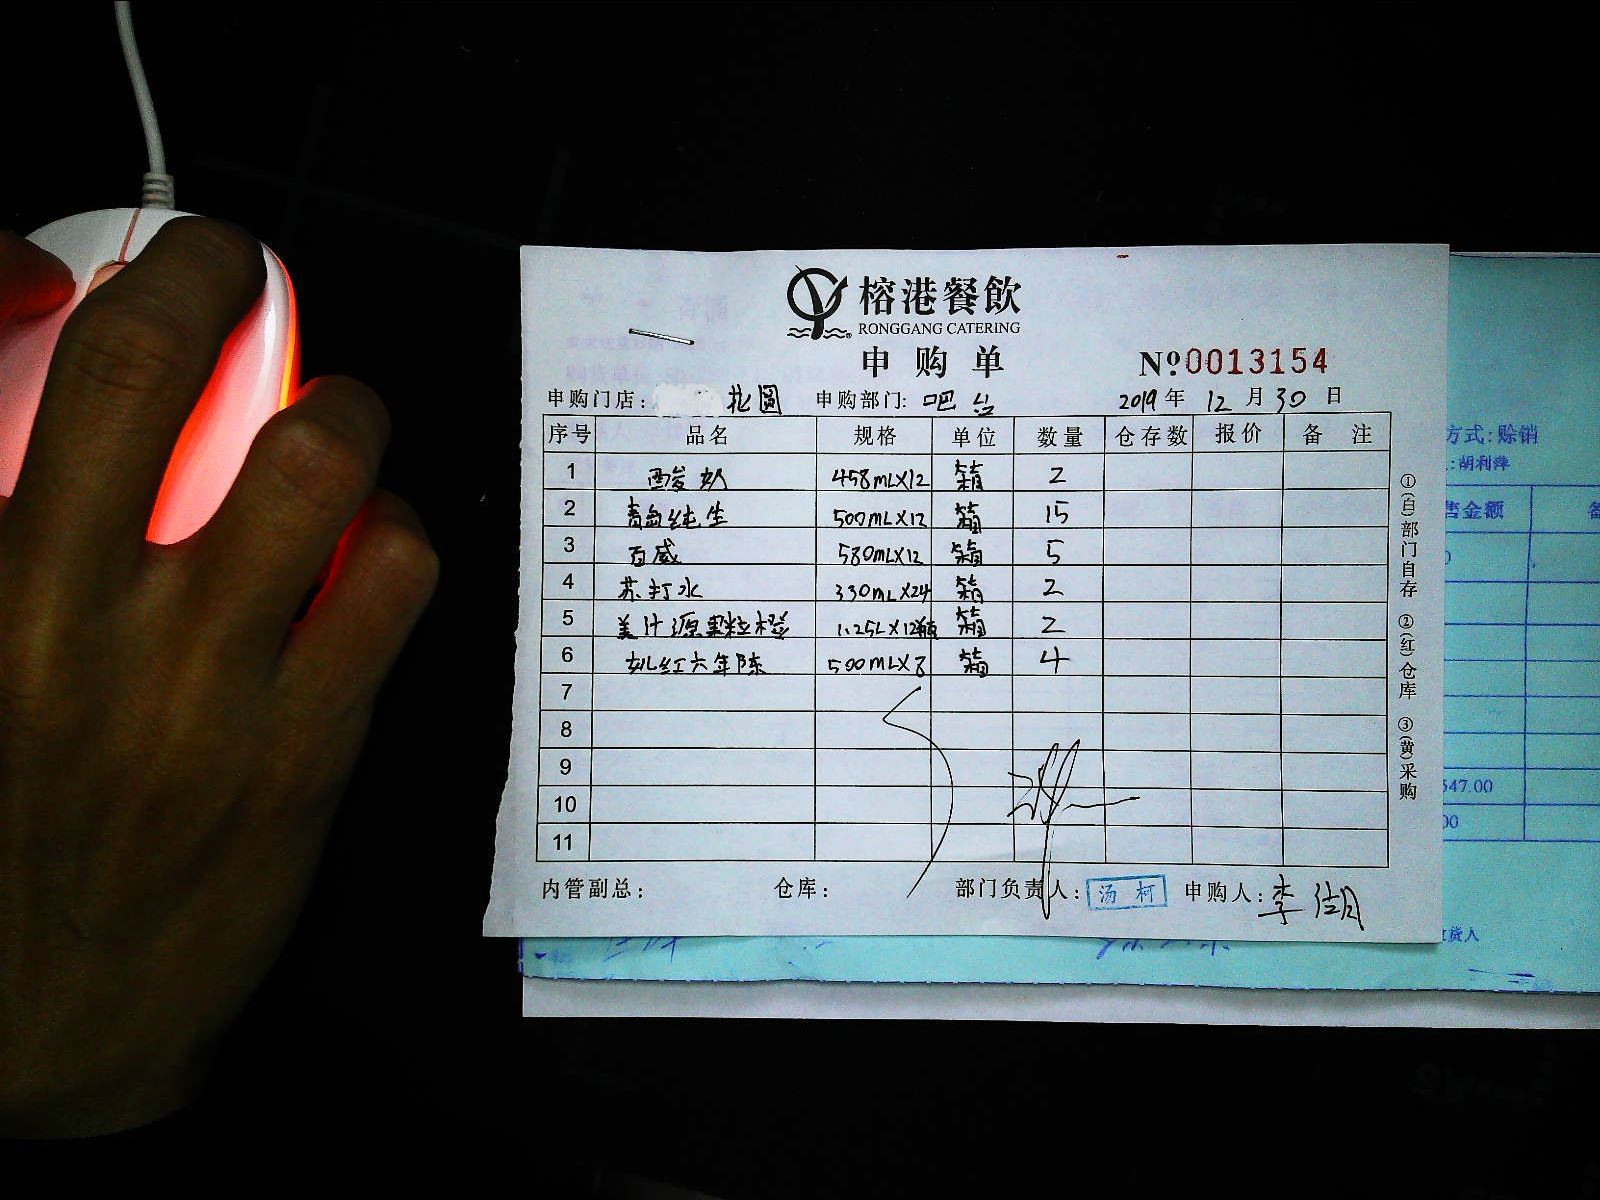 榕港餐飲
RONGGANG CATERING
申购单
№0013154
申购门店: 北圆 申购部门: 吧台 2019年12月30日
序号 品名 规格 单位 数量 仓存数 报价 备注
1 酸奶 458mL×12 箱 2
2 青岛纯生 500mL×12 箱 15
3 百威 580mL×12 箱 5
4 苏打水 330mL×24 箱 2
5 美汁源果粒橙 1.25L×12瓶 箱 2
6 女儿红六年陈 500mL×8 箱 4
7
8
9
10
11
内管副总: 仓库: 部门负责人: 汤柯 申购人: 李
①(白)部门自存 ②(红)仓库 ③(黄)采购
方式:赊销
:胡利萍
售金额
547.00
00
货人